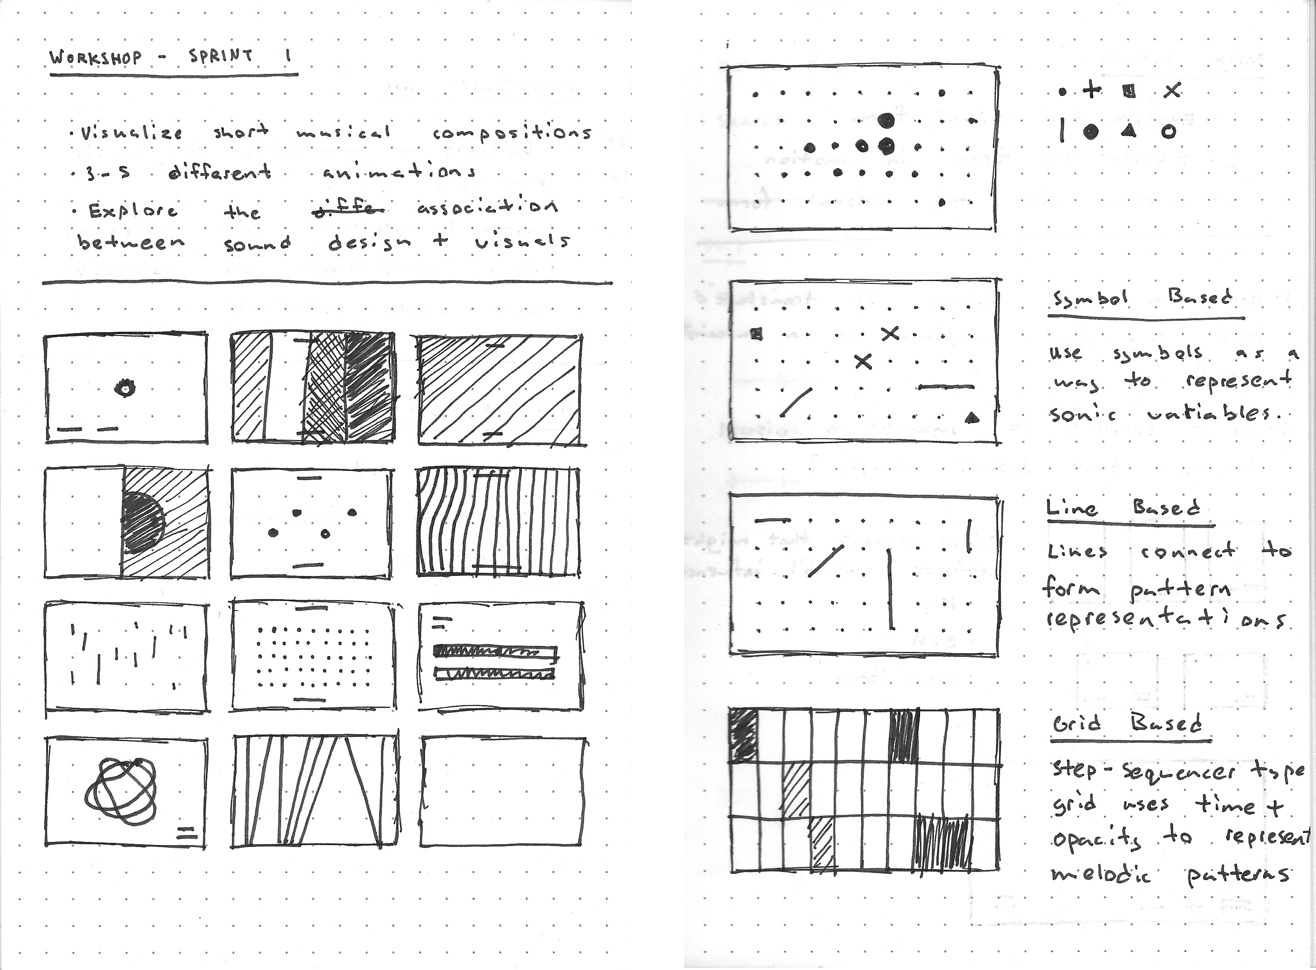 WORKSHOP - SPRINT 1
· Visualize short musical compositions
· 3-5 different animations
· Explore the diffe association
between sound design + visuals
Symbol Based
use symbols as a
way to represent
sonic variables.
Line Based
Lines connect to
form pattern
representations
Grid Based
Step-sequencer type
grid uses time +
opacity to represent
melodic patterns